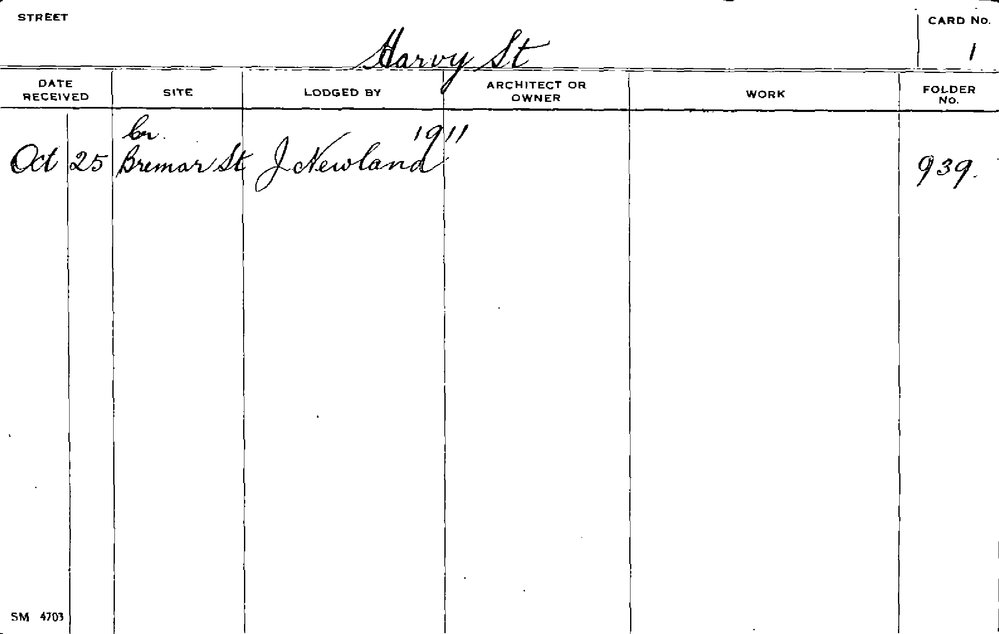 STREET
Harvy St
CARD No.
1
DATE RECEIVED
SITE
LODGED BY
ARCHITECT OR OWNER
WORK
FOLDER No.
1911
Oct 25
Cr.
Bremar St
J Newland
939.
SM 4703